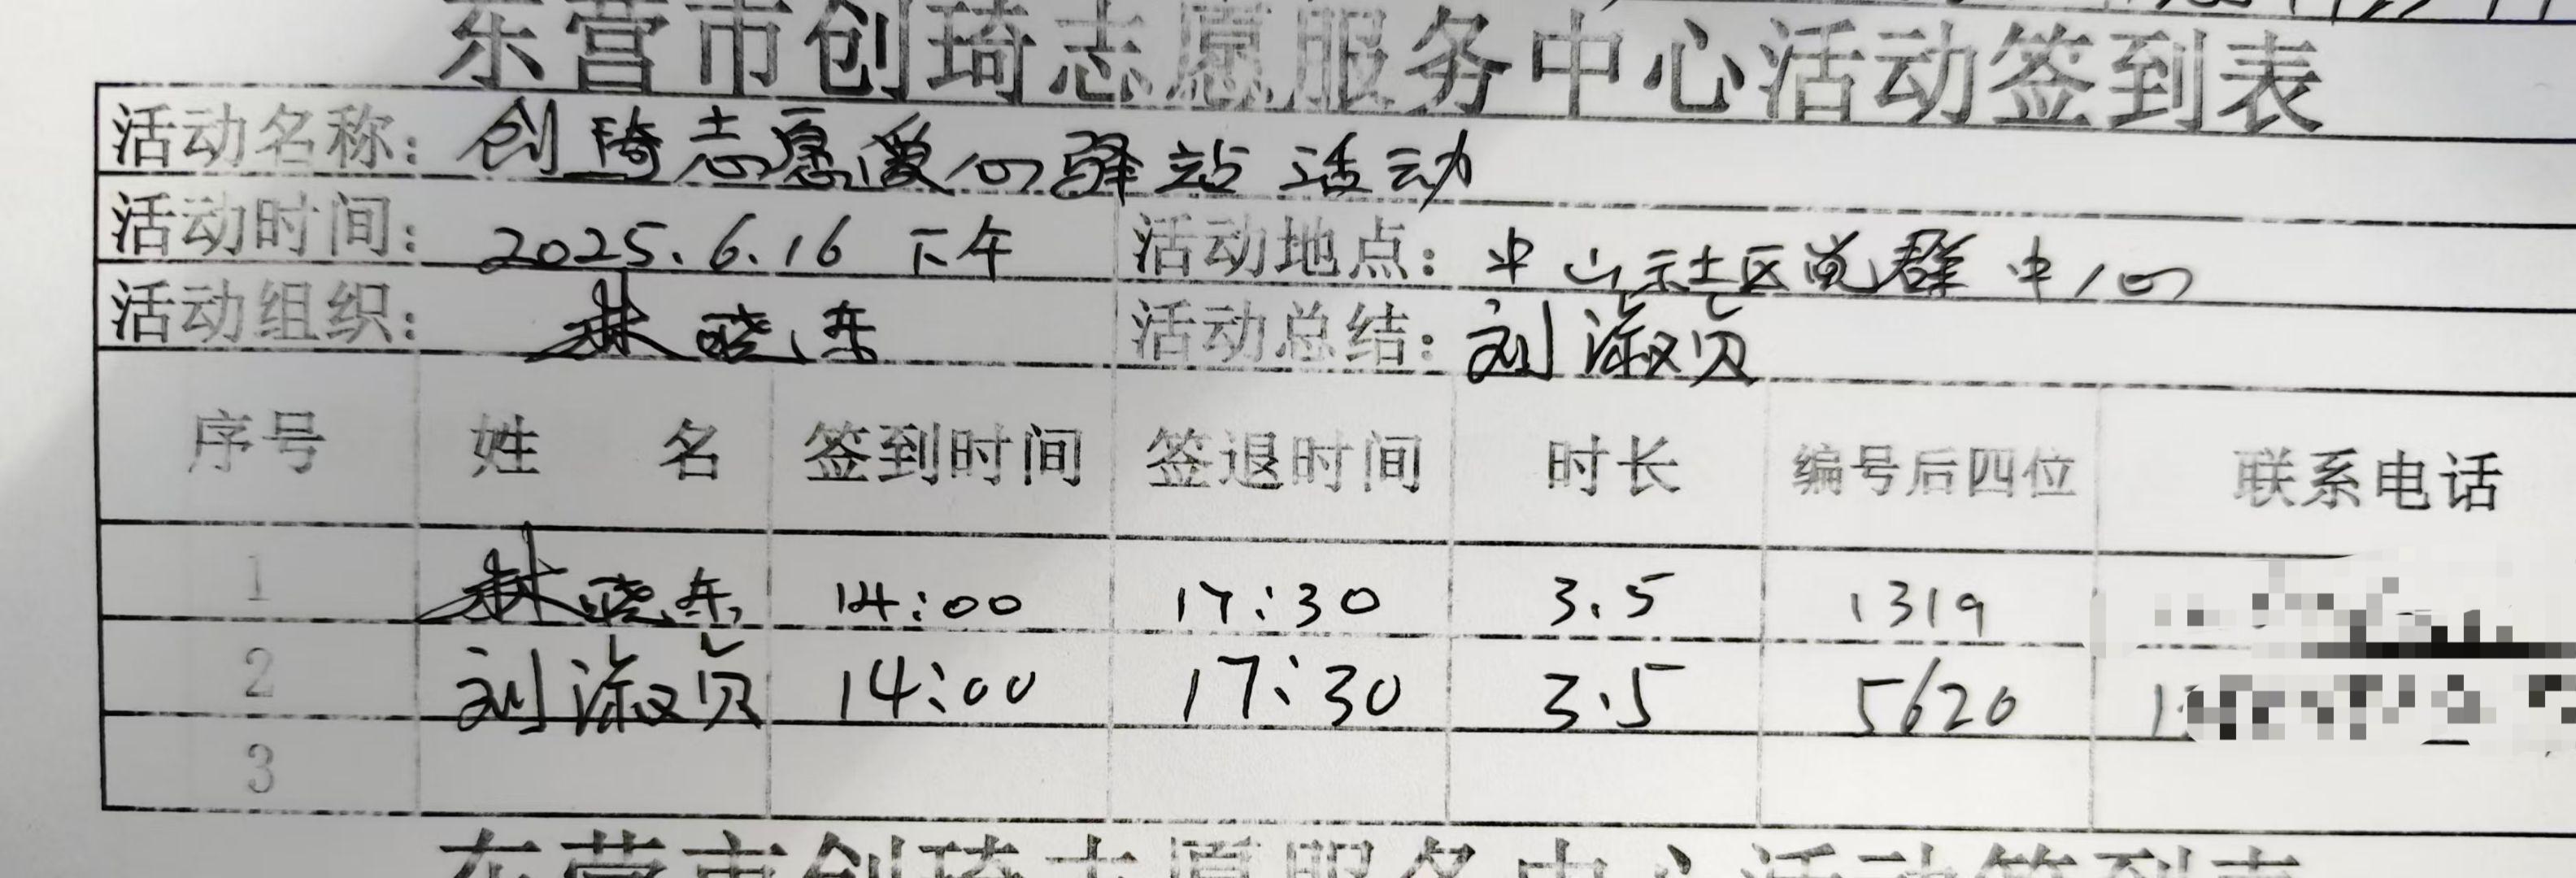 东营市创琦志愿服务中心活动签到表
活动名称：创琦志愿爱心驿站活动
活动时间：2025.6.16 下午 活动地点：中山社区党群中心
活动组织：林晓东 活动总结：刘淑贞
序号 姓 名 签到时间 签退时间 时长 编号后四位 联系电话
1 林晓东 14:00 17:30 3.5 1319
2 刘淑贞 14:00 17:30 3.5 5620
3
东营市创琦志愿服务中心活动签到表